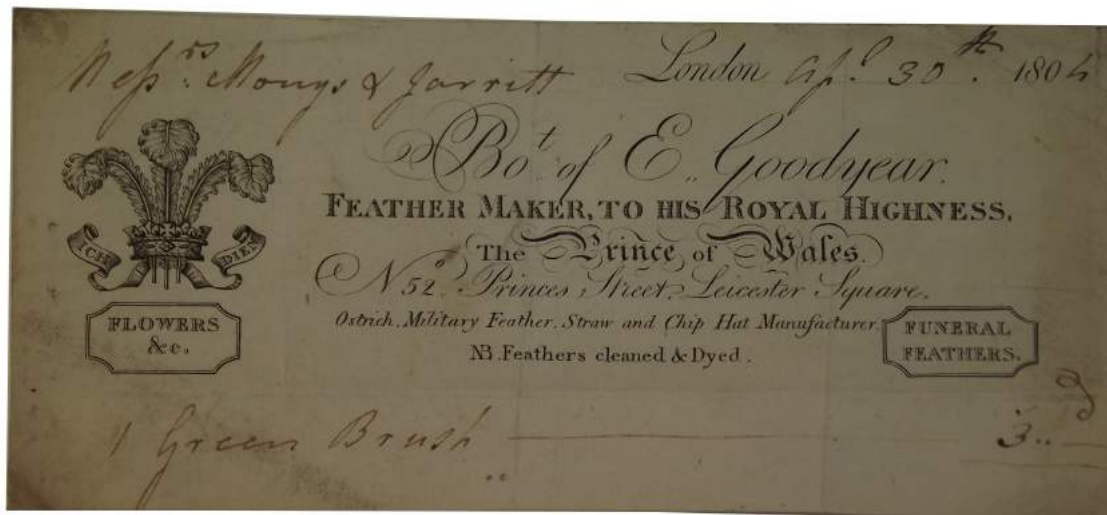 Messrs. Mongs & Jarritt
London Apl 30th. 1804
Bot. of E. Goodyear.
FEATHER MAKER, TO HIS ROYAL HIGHNESS,
The Prince of Wales.
No 52. Princes Street, Leicester Square.
Ostrich, Military Feather, Straw and Chip Hat Manufacturer.
NB. Feathers cleaned & Dyed.
ICH DIEN
FLOWERS
&c.
FUNERAL
FEATHERS.
1 Green Brush 3..